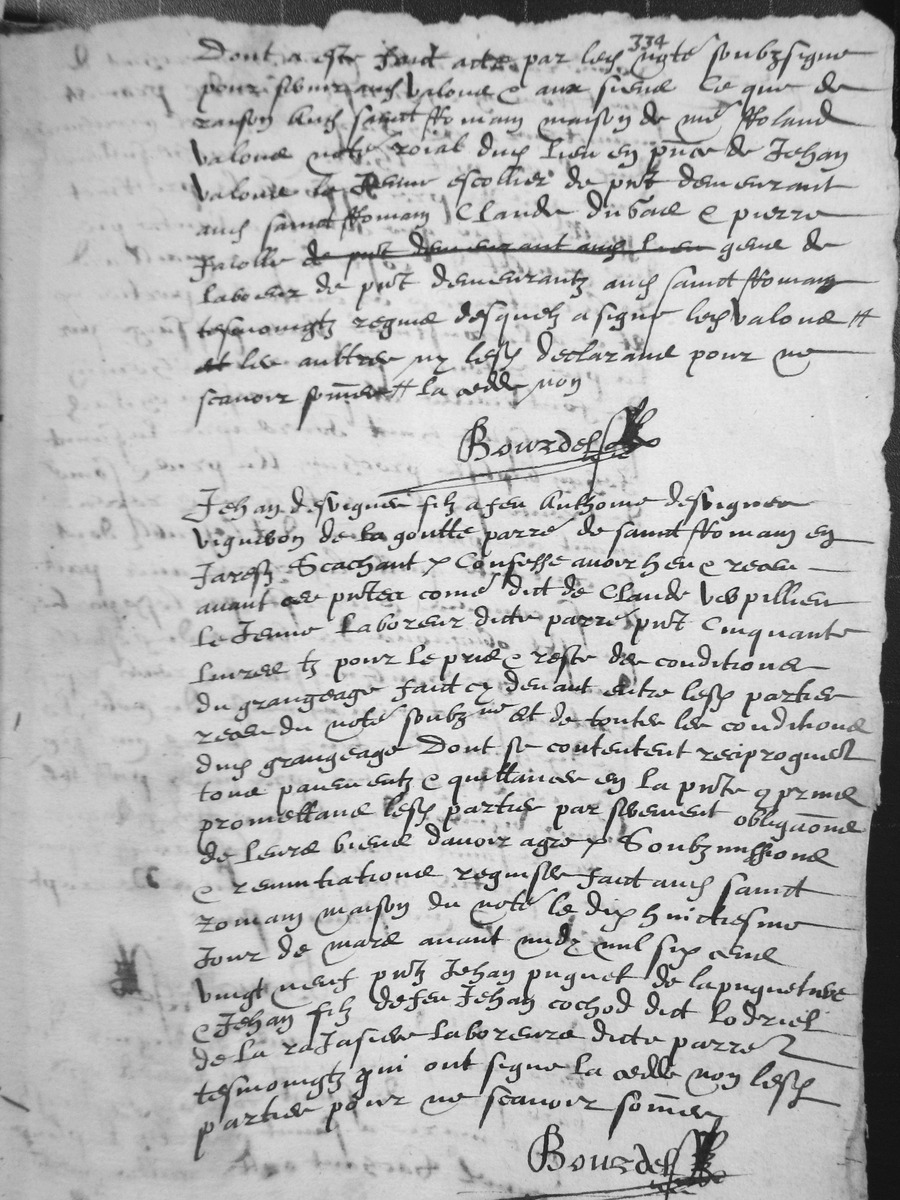 334
Dont a este faict acte par les note soubzsigne
pour servir aud valoue & aux siens ce que de
raison Aud sainct Romain maison de me Roland
valoue note roial dud lieu en pnce de Jehan
valoue le Jeune escollier de pnt demeurant
aud sainct Romain Claude du Gae & pierre
Jacolle de pnt demeurant aud lieu gens de
labeur de pnt demeurantz aud sainct Romain
tesmoingtz requis desquelz a signe led valoue
et les aulttres ny lesd declarans pour ne
scavoir sommes la cedde non
Bourdel
Jehan desvignes filz a feu Anthoine desvignes
vigneron de la goutte parre de sainct Romain en
Jarestz Scachant Confesse avoir heu & receu
avant ces pntes come dict de Claude Vespillieu
le Jeune laboreur dicte parre pnt Cinquante
livres tz pour le pris & reste des conditions
du grangeage faict cy devant entre lesd parties
receu du note soubzne et de toutes les conditions
dud grangeage Dont se contentent reciproquet
tous paiementz & quittances en la pnte
promettans lesd parties par serement obligaone
de leurs biens davoir agre Soubzmissions
& renuntiations requises faict aud sainct
romain maison du note le dix huictiesme
Jour de mars avant midy mil six cens
vingt neuf pntz Jehan puquet de la puquetiere
& Jehan filz de feu Jehan cochod dict lodriel
de la raJasiere laboreurs dicte parre
tesmoingtz qui ont signe la cedde non lesd
parties pour ne scavoir sommes
Bourdel